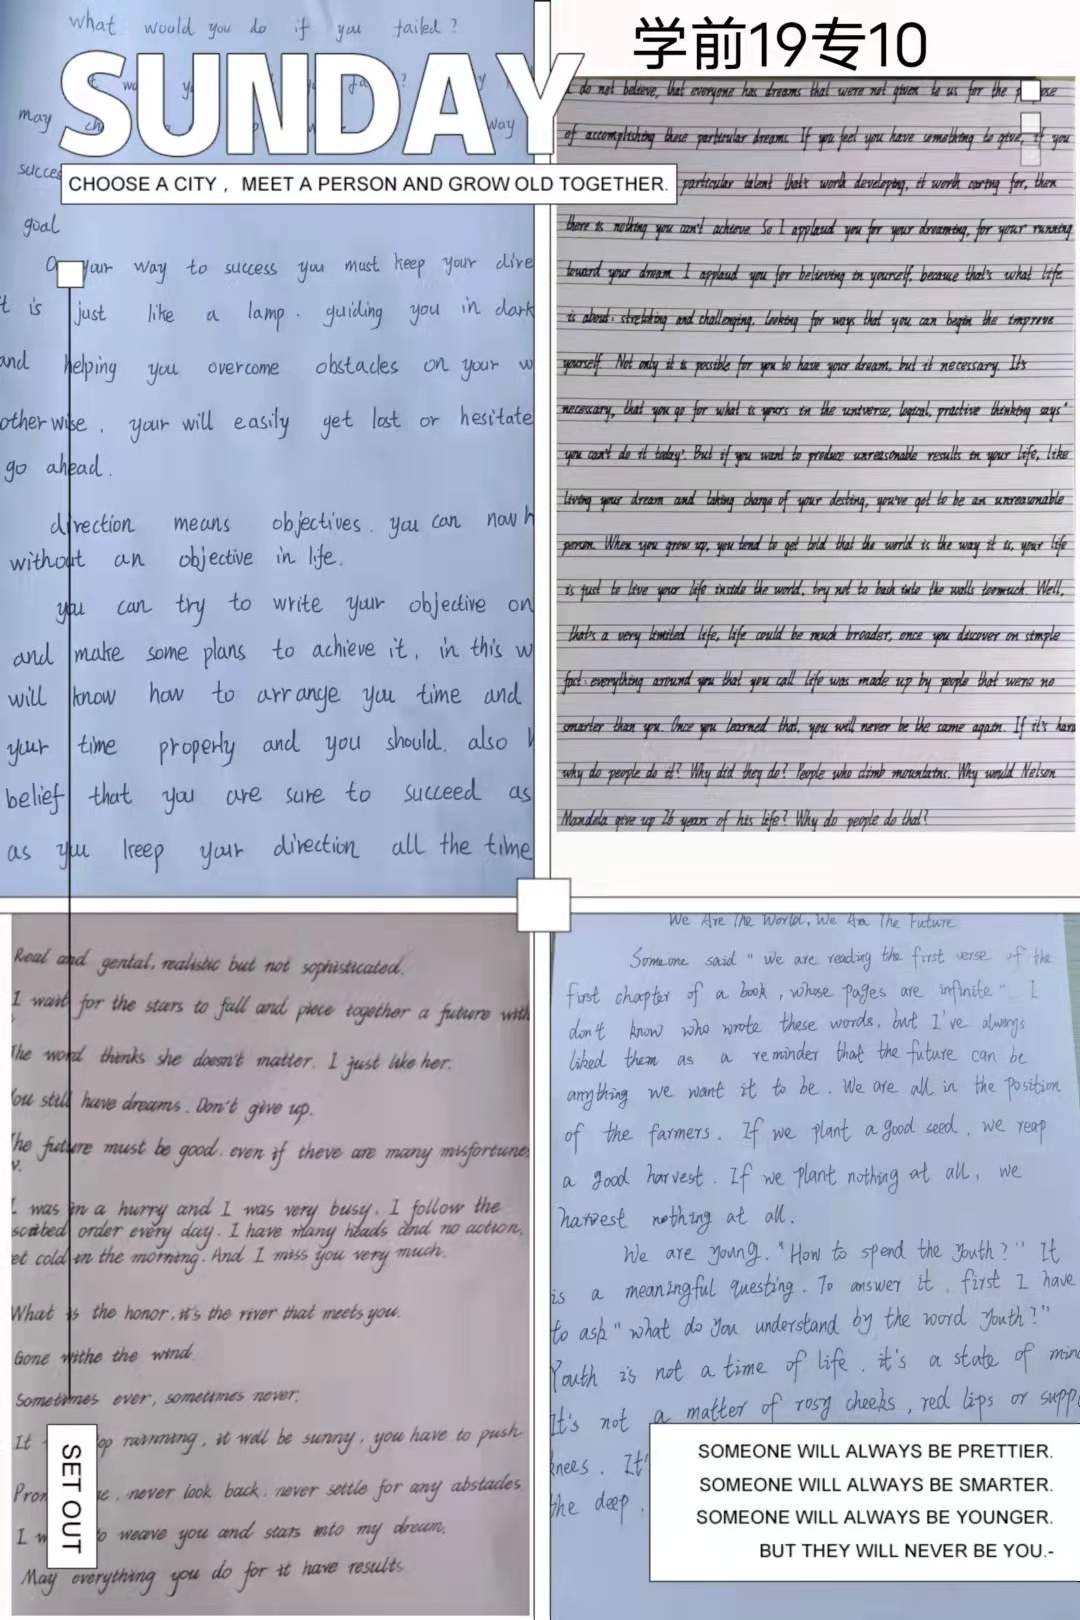 学前19专10
SUNDAY
CHOOSE A CITY , MEET A PERSON AND GROW OLD TOGETHER.
what would you do if you failed ?
may
goal
your way to success you must keep your dire
t is just like a lamp . guiding you in dark
and helping you overcome obstacles on your w
otherwise , your will easily get lost or hesitate
go ahead .
direction means objectives . you can now h
without an objective in life .
you can try to write your objective on
and make some plans to achieve it , in this w
will know how to arrange you time and
your time properly and you should. also
belief that you are sure to succeed as
as you keep your direction all the time
do not believe, that everyone has dreams that were not given to us for the
of accomplishing these particular dreams. If you feel you have something to give, if you
particular talent that's worth developing, it worth caring for, then
there is nothing you can't achieve. So I applaud you for your dreaming, for your running
toward your dream. I applaud you for believing in yourself, because that's what life
is about: stretching and challenging, looking for ways that you can begin the improve
yourself. Not only it is possible for you to have your dream, but it necessary. It's
necessary, that you go for what is yours in the universe, logical, practive thinking says"
you can't do it today". But if you want to produce unreasonable results in your life, like
living your dream and taking charge of your destiny, you've got to be an unreasonable
person. When you grow up, you tend to get told that the world is the way it is, your life
is just to live your life inside the world, try not to bash into the walls toomuch. Well,
that's a very limited life, life could be much broader, once you discover on simple
fact: everything around you that you call life was made up by people that were no
smarter than you. Once you learned that, you will never be the same again. If it's hard
why do people do it? Why did they do? People who climb mountains. Why would Nelson
Mandela give up 26 years of his life? Why do people do that?
Real and gental, realistic but not sophisticated.
I wait for the stars to fall and piece together a future with
The word thinks she doesn't matter. I just like her.
You still have dreams. Don't give up.
The future must be good, even if theve are many misfortune
I was in a hurry and I was very busy. I follow the
order every day. I have many heads and no action,
et cold in the morning. And I miss you very much.
What is the honor, it's the river that meets you.
Gone withe the wind.
Sometimes ever, sometimes never.
It op rainming, it will be sunny, you have to push
never look back. never settle for any abstacles.
I to weave you and stars into my dream.
May everything you do for it have results.
SET OUT
We Are The World, We Are The Future
Someone said " we are reading the first verse of the
first chapter of a book , whose pages are infinite " . I
don't know who wrote these words, but I've always
liked them as a reminder that the future can be
anything we want it to be . We are all in the position
of the farmers . If we plant a good seed , we reap
a good harvest . If we plant nothing at all, we
harvest nothing at all .
We are young . "How to spend the youth ? " It
is a meaningful questing . To answer it , first I have
to ask " what do you understand by the word youth ? "
Youth is not a time of life , it's a state of min
It's not a matter of rosy cheeks , red lips or supp
knees . It'
the deep .
SOMEONE WILL ALWAYS BE PRETTIER.
SOMEONE WILL ALWAYS BE SMARTER.
SOMEONE WILL ALWAYS BE YOUNGER.
BUT THEY WILL NEVER BE YOU.-